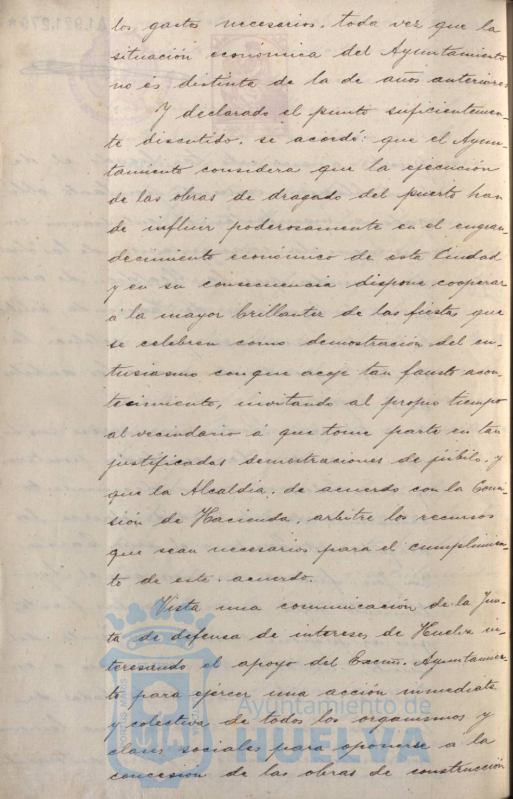 los gastos necesarios, toda vez que la
situación económica del Ayuntamiento
no es distinta de la de años anteriores
Y declarado el punto suficientemen-
te discutido, se acordó: que el Ayun-
tamiento considera que la ejecución
de las obras de dragado del puerto han
de influir poderosamente en el engran-
decimiento económico de esta Ciudad
y en su consecuencia dispone cooperar
á la mayor brillantez de las fiestas que
se celebren como demostración del en-
tusiasmo con que acoje tan fausto acon-
tecimiento, invitando al propio tiempo
al vecindario á que tome parte en tan
justificadas demostraciones de júbilo, y
que la Alcaldia, de acuerdo con la Comi-
sión de Hacienda, arbitre los recursos
que sean necesarios para el cumplimien-
to de este acuerdo.
Vista una comunicación de la Jun-
ta de defensa de intereses de Huelva in-
teresando el apoyo del Excmo. Ayuntamien-
to para ejercer una acción inmediata
y colectiva de todos los organismos y
clases sociales para oponerse a la
concesión de las obras de construcción
Ayuntamiento de
HUELVA